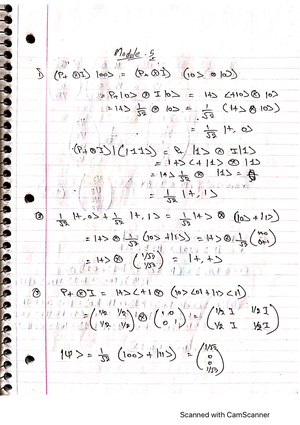 Module-5
1) (P+ ⊗ I) |00> = (P+ ⊗ I) (|0> ⊗ |0>)
= P+ |0> ⊗ I |0> = |+> <+|0> ⊗ |0>
= |+> 1/√2 ⊗ |0> = 1/√2 (|+> ⊗ |0>)
= 1/√2 |+, 0>
(P+ ⊗ I) |(11)> = P+ |1> ⊗ I|1>
= |+> <+|1> ⊗ |1>
= |+> 1/√2 ⊗ |1> =
= 1/√2 |+, 1>
② 1/√2 |+, 0> + 1/√2 |+, 1> = 1/√2 |+> ⊗ (|0> + |1>)
= |+> ⊗ 1/√2 (|0> + |1>) = |+> ⊗ 1/√2
= |+> ⊗ (1/√2 1/√2) = |+, +>
③ P+ ⊗ I = |+> <+| ⊗ (|0> <0| + |1> <1|)
= (1/2 1/2 1/2 1/2) ⊗ (1 0 0 1) = (1/2 I 1/2 I 1/2 I 1/2 I)
|ψ> = 1/√2 (|00> + |11>) = (1/√2 0 0 1/√2)
Scanned with CamScanner